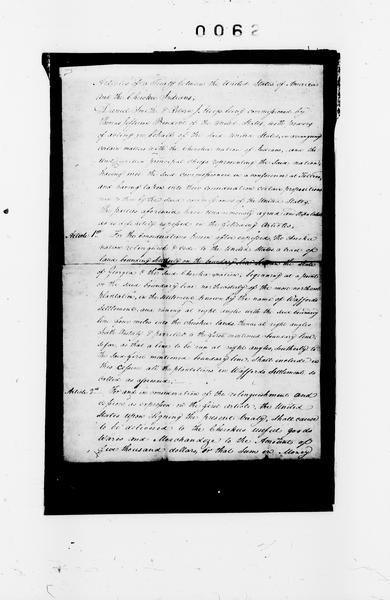 0062
Articles of a Treaty between the United States of America
and the Cherokee Indians.
Daniel Smith & Return J. Meigs being commissioned by
Thomas Jefferson President of the United States, with powers
of acting in behalf of the said United States, in arranging
certain matters with the Cherokee nation of Indians, and the
underwritten principal chiefs representing the said nation;
having met the said commissioners in a conference at Tellico,
and having taken into their consideration certain propositions
made to them by the said commissioners of the United States;
the parties aforesaid have unanimously agreed and stipulated
as is definitely expressed in the following Articles.
Article 1st For the considerations hereinafter expressed, the Cherokee
nation relinquish & cede to the United States a tract of
land bounding southerly on the boundary line between the State
of Georgia & the said Cherokee nation, beginning at a point
on the said boundary line northeasterly of the most northeast
plantation, in the settlement known by the name of Waffords
Settlement, and running at right angles with the said boundary
line four miles into the Cherokee lands, thence at right angles
southwesterly & parallel to the first mentioned boundary line,
so far, as that a line to be run at right angles southerly to
the said first mentioned boundary line, shall include in
this cession all the plantations in Waffords Settlement so
called as aforesaid.
Article 2d For and in consideration of the relinquishment and
cession as expressed in the first article, the United
States upon signing the present treaty, shall cause
to be delivered to the Cherokees useful goods
wares and Merchandize to the Amount of
Five thousand dollars, or that sum in Money